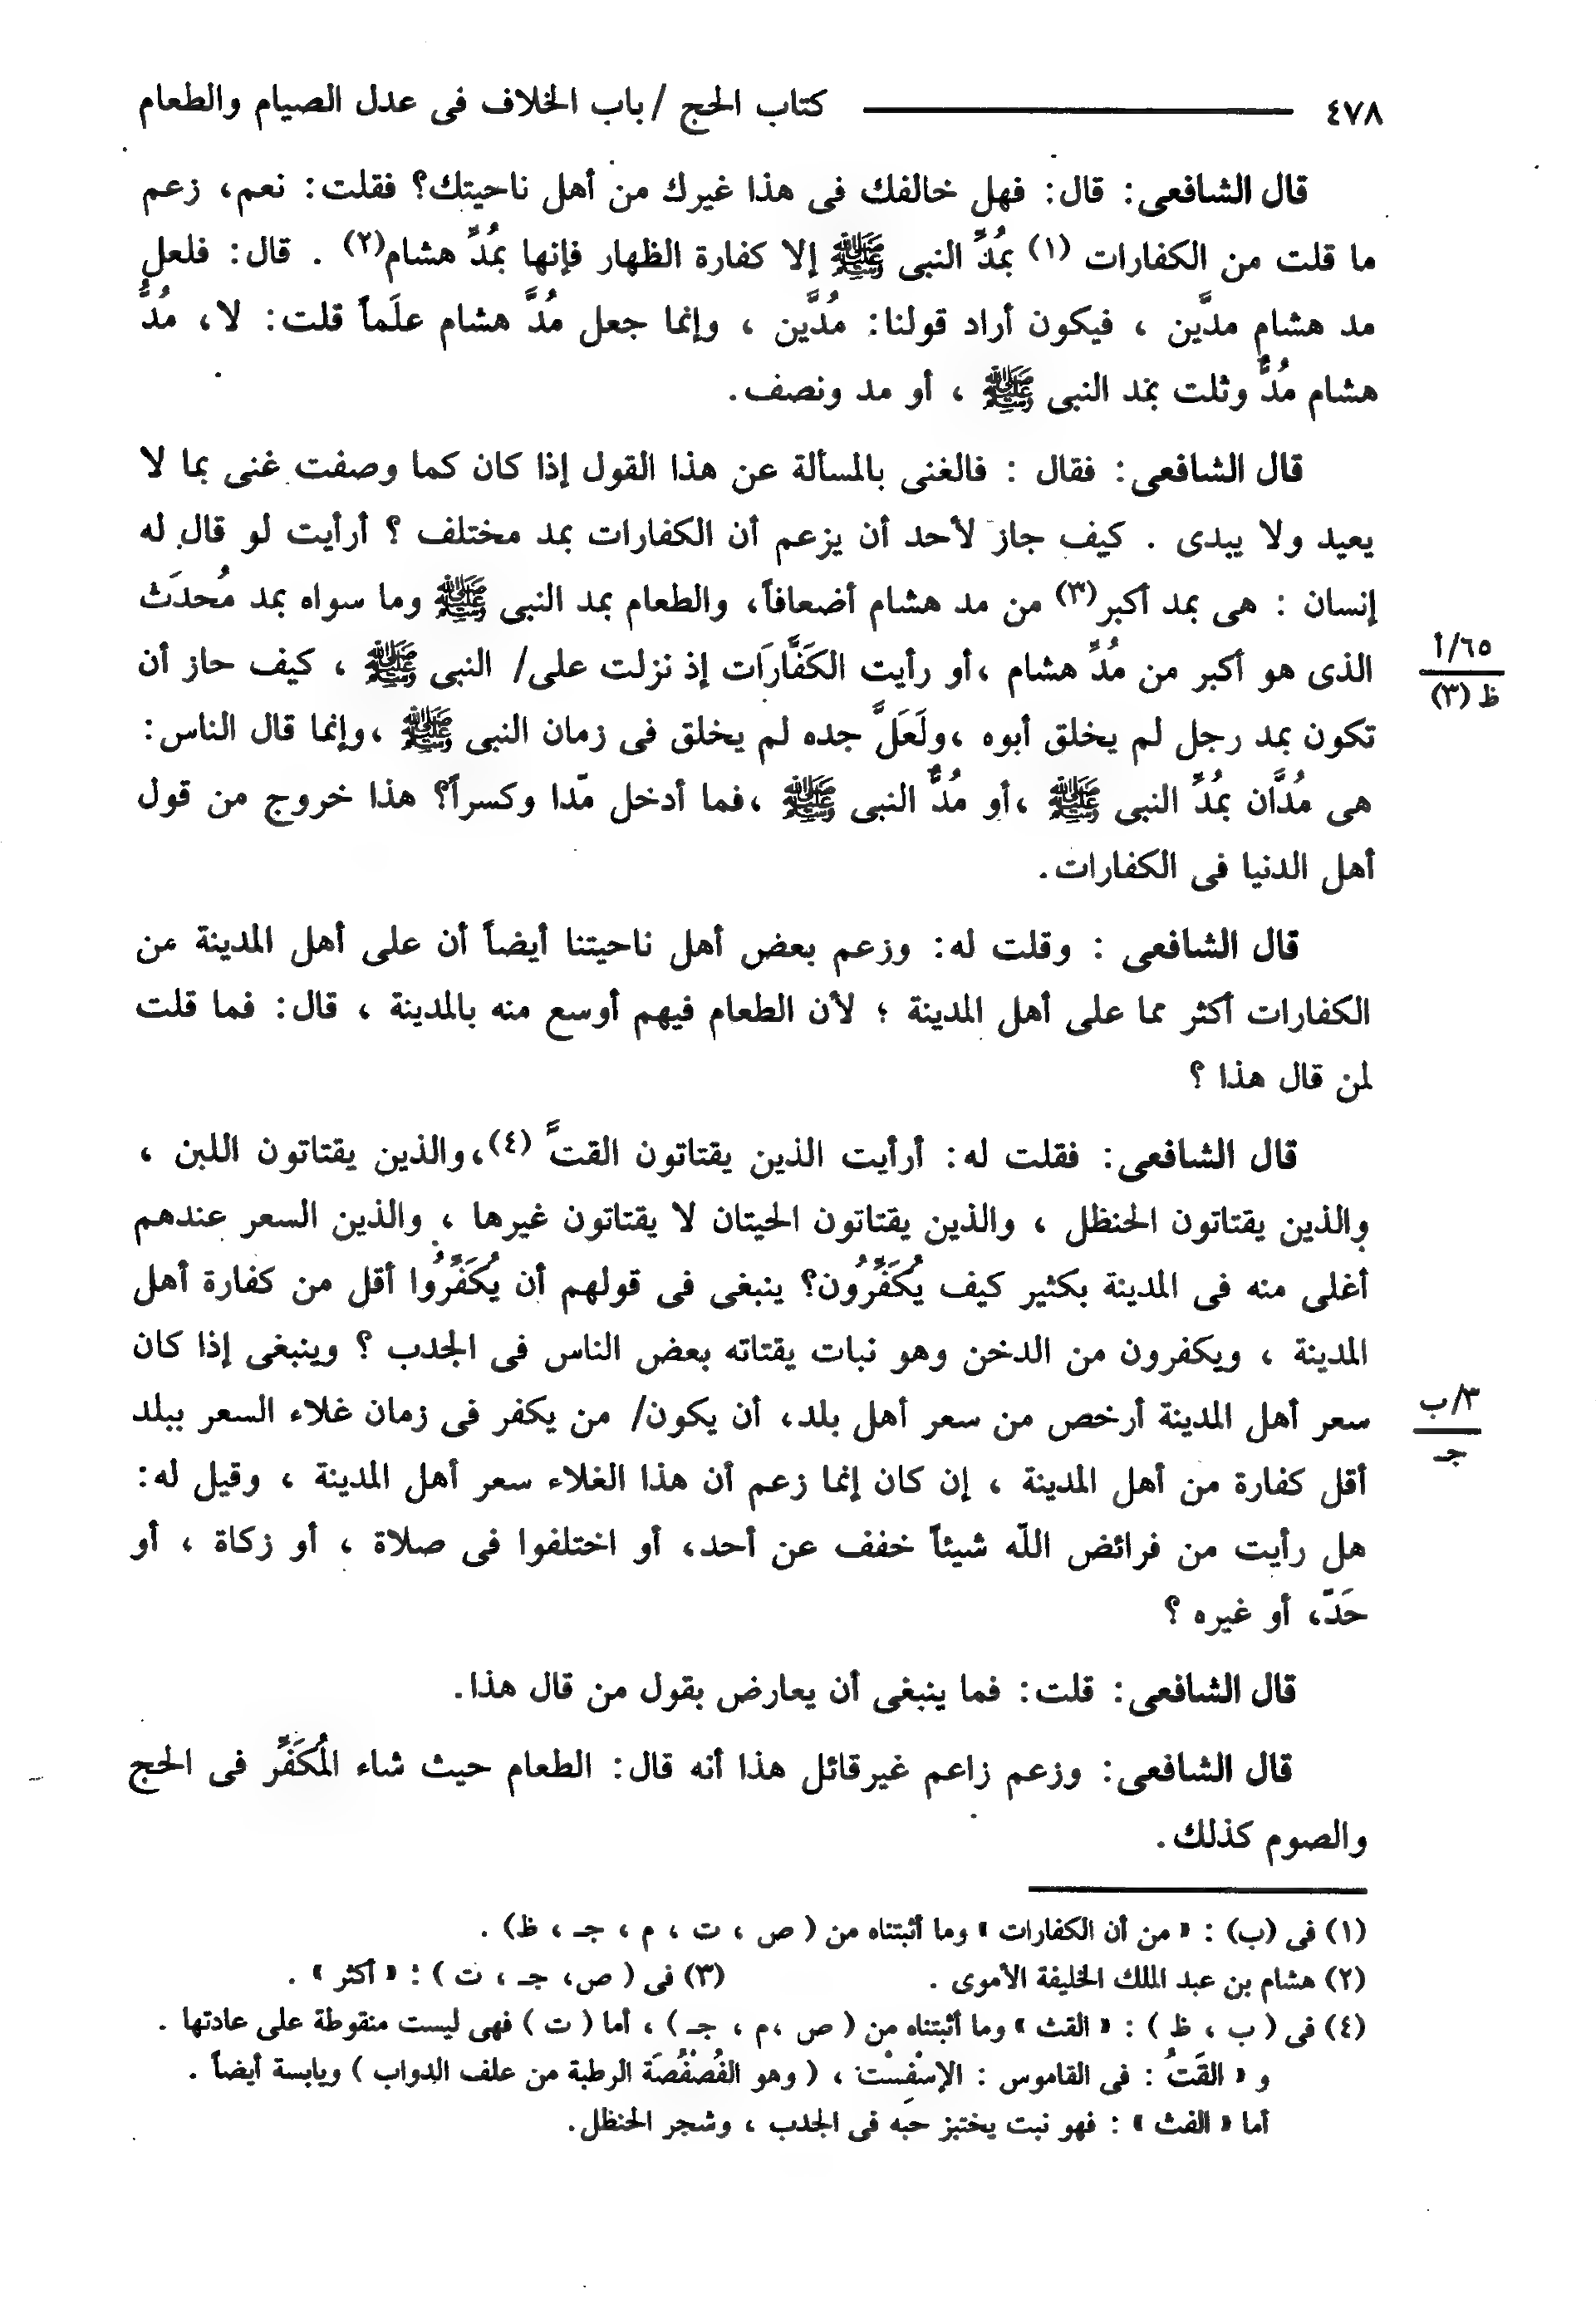 ٤٧٨ كتاب الحج / باب الخلاف فى عدل الصيام والطعام
قال الشافعى: قال: فهل خالفك فى هذا غيرك من أهل ناحيتك؟ فقلت: نعم، زعم
ما قلت من الكفارات (١) بمُدِّ النبى ﷺ إلا كفارة الظهار فإنها بمُدِّ هشام(٢) . قال: فلعل
مد هشام مدَّين ، فيكون أراد قولنا: مُدَّين ، وإنما جعل مُدَّ هشام علَماً قلت: لا، مُدُّ
هشام مُدٌّ وثلث بمد النبى ﷺ ، أو مد ونصف.
قال الشافعى: فقال : فالغنى بالمسألة عن هذا القول إذا كان كما وصفت غنى بما لا
يعيد ولا يبدى . كيف جاز لأحد أن يزعم أن الكفارات بمد مختلف ؟ أرأيت لو قال له
إنسان : هى بمد أكبر(٣) من مد هشام أضعافاً، والطعام بمد النبى ﷺ وما سواه بمد مُحدَث
الذى هو أكبر من مُدِّ هشام ،أو رأيت الكَفَّارَات إذ نزلت على/ النبى ﷺ ، كيف حاز أن
تكون بمد رجل لم يخلق أبوه ،ولَعَلَّ جده لم يخلق فى زمان النبى ﷺ ،وإنما قال الناس:
هى مُدَّان بمُدِّ النبى ﷺ ،أو مُدٌّ النبى ﷺ ،فما أدخل مّدا وكسراً؟ هذا خروج من قول
أهل الدنيا فى الكفارات.
٦٥/أ
ظ (٣)
قال الشافعى : وقلت له: وزعم بعض أهل ناحيتنا أيضاً أن على أهل المدينة من
الكفارات أكثر مما على أهل المدينة ؛ لأن الطعام فيهم أوسع منه بالمدينة ، قال: فما قلت
لمن قال هذا ؟
قال الشافعى: فقلت له: أرأيت الذين يقتاتون القتَّ (٤)،والذين يقتاتون اللبن ،
والذين يقتاتون الحنظل ، والذين يقتاتون الحيتان لا يقتاتون غيرها ، والذين السعر عندهم
أغلى منه فى المدينة بكثير كيف يُكَفِّرُون؟ ينبغى فى قولهم أن يُكَفِّرُوا أقل من كفارة أهل
المدينة ، ويكفرون من الدخن وهو نبات يقتاته بعض الناس فى الجدب ؟ وينبغى إذا كان
سعر أهل المدينة أرخص من سعر أهل بلد، أن يكون/ من يكفر فى زمان غلاء السعر ببلد
أقل كفارة من أهل المدينة ، إن كان إنما زعم أن هذا الغلاء سعر أهل المدينة ، وقيل له:
هل رأيت من فرائض اللّه شيئاً خفف عن أحد، أو اختلفوا فى صلاة ، أو زكاة ، أو
حَدّ، أو غيره ؟
٣/ب
جـ
قال الشافعى: قلت: فما ينبغى أن يعارض بقول من قال هذا.
قال الشافعى: وزعم زاعم غيرقائل هذا أنه قال: الطعام حيث شاء المُكَفِّر فى الحج
والصوم كذلك.
(١) فى (ب) : « من أن الكفارات » وما أثبتناه من ( ص ، ت ، م ، جـ ، ظ) .
(٢) هشام بن عبد الملك الخليفة الأموى . (٣) فى ( ص، جـ ، ت ) : « أكثر » .
(٤) فى ( ب ، ظ ) : « القث » وما أثبتناه من ( ص ،م ، جـ ) ، أما ( ت ) فهى ليست منقوطة على عادتها .
و « القَتُ : فى القاموس : الإسْفِسْت ، ( وهو الفُصْفُصَة الرطبة من علف الدواب ) ويابسة أيضاً .
أما « الفث » : فهو نبت يختبز حبه فى الجدب ، وشجر الحنظل.